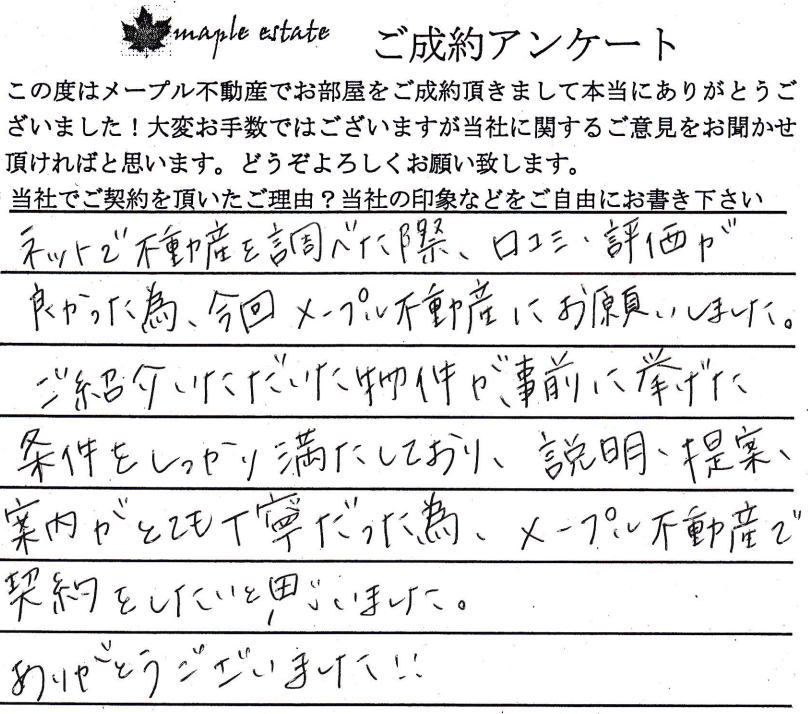 maple estate ご成約アンケート
この度はメープル不動産でお部屋をご成約頂きまして本当にありがとうご
ざいました！大変お手数ではございますが当社に関するご意見をお聞かせ
頂ければと思います。どうぞよろしくお願い致します。
当社でご契約を頂いたご理由？当社の印象などをご自由にお書き下さい
ネットで不動産を調べた際、口コミ・評価が
良かった為、今回メープル不動産にお願いしました。
ご紹介いただいた物件が、事前に挙げた
条件をしっかり満たしており、説明、提案、
案内がとても丁寧だった為、メープル不動産で
契約をしたいと思いました。
ありがとうございました!!